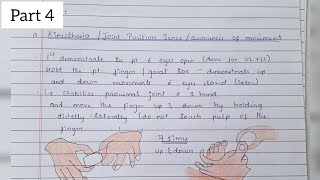 Part 4
Kinesthesia / Joint Position Sense / awareness of movement
1st demonstrate to pt c̄ eyes open (done for UL & LL)
Hold the pt finger / great toe - demonstrate up
and down movements c̄ eyes closed
i.e Stabilise proximal joint c̄ 1 hand
and move the finger up & down by holding
distally - laterally (do not touch pulp of the
finger
7 times
up & down